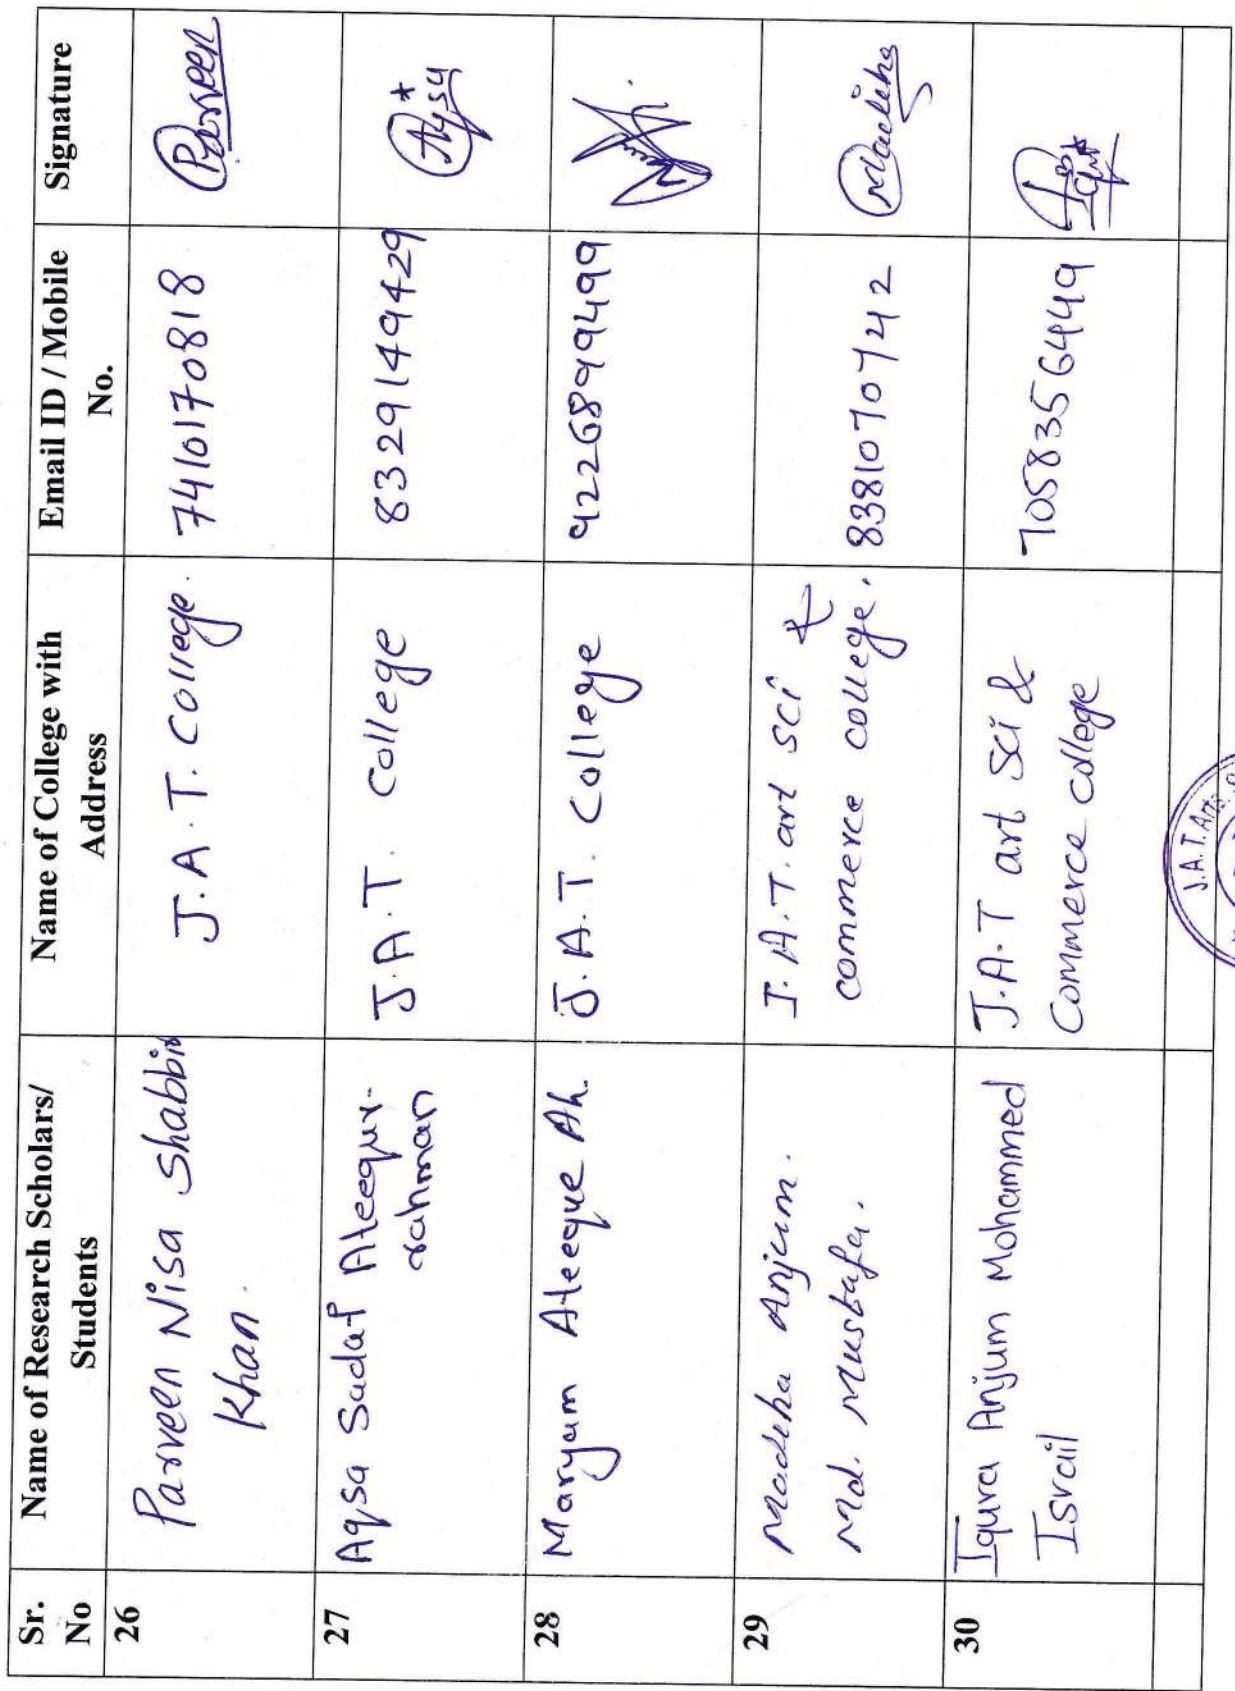 Sr. No | Name of Research Scholars/ Students | Name of College with Address | Email ID / Mobile No. | Signature
26 | Parveen Nisa Shabbir Khan. | J.A.T. College. | 7410170818 | Parveen
27 | Aqsa Sadaf Ateequr-rahman | J.A.T. College | 8329149429
28 | Maryam Ateeque Ah. | J.A.T. College | 9226899499
29 | Madeha Anjum. Md. Mustafa. | J.A.T. art sci & commerce college. | 8381070742 | Madeeha
30 | Iqura Anjum Mohammed Israil | J.A.T art sci & Commerce college | 7058356449
J.A.T. Arts